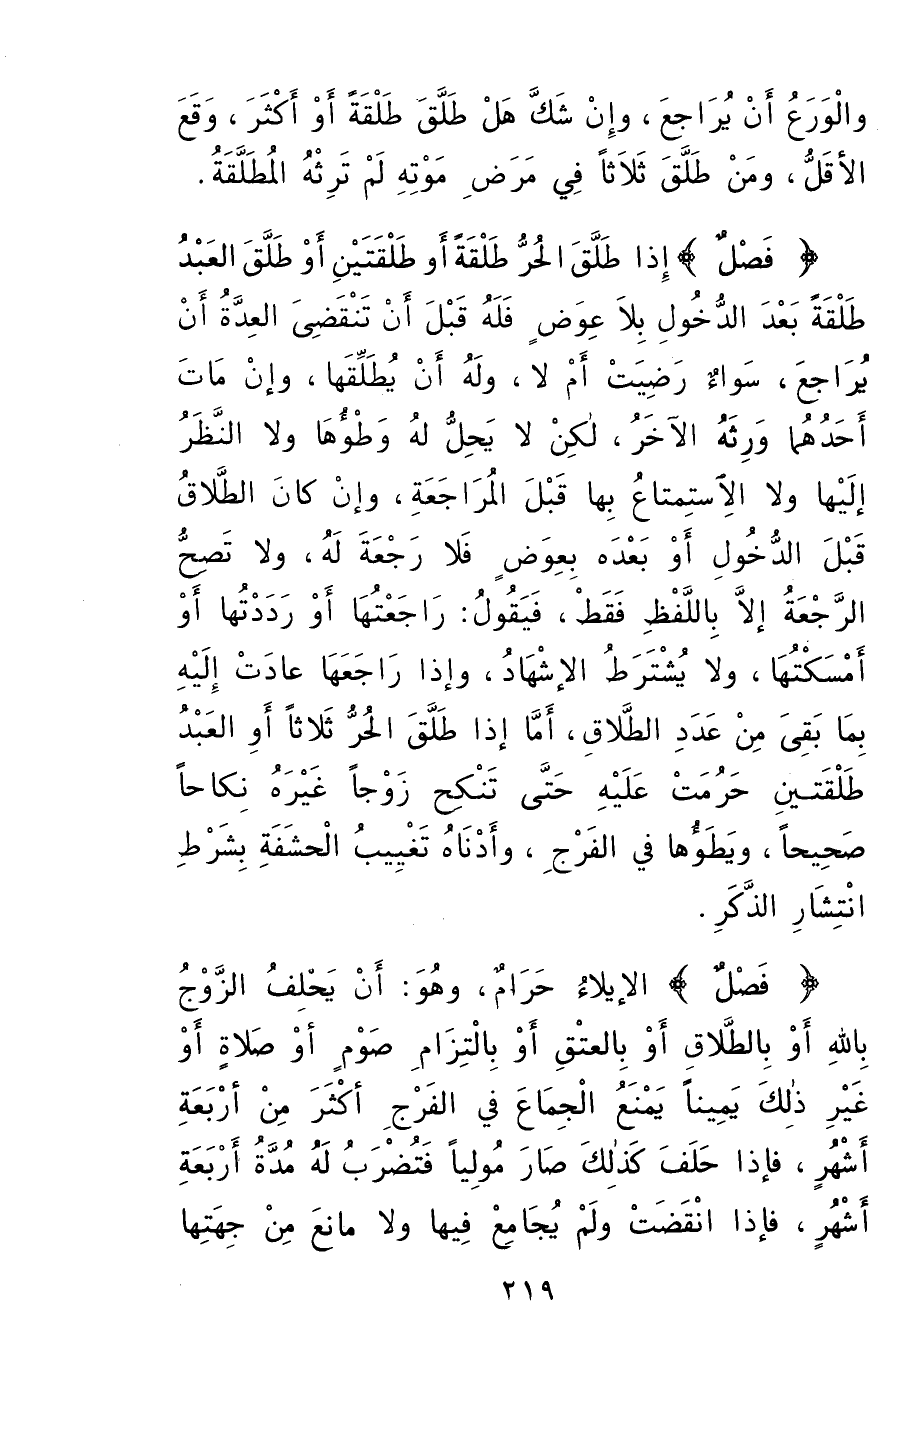 والْوَرَعُ أَنْ يُرَاجِعَ ، وإِنْ شَكَّ هَلْ طَلَّقَ طَلْقَةً أَوْ أَكْثَرَ ، وَقَعَ
الأقَلُّ ، ومَنْ طَلَّقَ ثَلَاثاً فِي مَرَضِ مَوْتِهِ لَمْ تَرِثْهُ المُطَلَّقَةُ .
﴿ فَصْلٌ ﴾ إِذا طَلَّقَ الحُرُّ طَلْقَةً أَو طَلْقَتَيْنِ أَوْ طَلَّقَ العَبْدُ
طَلْقَةً بَعْدَ الدُّخُولِ بِلاَ عِوَضٍ فَلَهُ قَبْلَ أَنْ تَنْقَضِيَ العِدَّةُ أَنْ
يُرَاجِعَ ، سَواءٌ رَضِيَتْ أَمْ لا ، ولَهُ أَنْ يُطَلِّقَها ، وإنْ مَاتَ
أَحَدُهُما وَرِثَهُ الآخَرُ ، لٰكِنْ لا يَحِلُّ لهُ وَطْؤُهَا ولا النَّظَرُ
إلَيْها ولا الاِستِمتاعُ بِها قَبْلَ المُرَاجَعَةِ ، وإنْ كانَ الطَّلاقُ
قَبْلَ الدُّخُولِ أَوْ بَعْدَه بِعِوَضٍ فَلا رَجْعَةَ لَهُ ، ولا تَصِحُّ
الرَّجْعَةُ إلاَّ بِاللَّفْظِ فَقَطْ ، فَيَقُولُ : رَاجَعْتُهَا أَوْ رَدَدْتُها أَوْ
أَمْسَكْتُهَا ، ولا يُشْتَرَطُ الإشْهَادُ ، وإذا رَاجَعَهَا عادَتْ إِلَيْهِ
بِمَا بَقِيَ مِنْ عَدَدِ الطَّلَاقِ ، أَمَّا إذا طَلَّقَ الحُرُّ ثَلاثاً أَوِ العَبْدُ
طَلْقَتـينِ حَرُمَتْ عَلَيْهِ حَتَّى تَنْكِحَ زَوْجاً غَيْرَهُ نِكاحاً
صَحِيحاً ، ويَطَؤُها في الفَرْجِ ، وأَدْنَاهُ تَغْيِيبُ الْحشَفَةِ بِشَرْطِ
انْتِشَارِ الذَّكَرِ .
﴿ فَصْلٌ ﴾ الإيلاءُ حَرَامٌ ، وهُوَ : أَنْ يَحْلِفُ الزَّوْجُ
بِاللهِ أَوْ بِالطَّلَاقِ أَوْ بِالعتْقِ أَوْ بِالْتِزَامِ صَوْمٍ أوْ صَلاةٍ أَوْ
غَيْرِ ذٰلِكَ يَمِيناً يَمْنَعُ الْجِمَاعَ في الفَرْجِ أكْثَرَ مِنْ أرْبَعَةِ
أَشْهُرٍ ، فإذا حَلَفَ كَذٰلِكَ صَارَ مُولِياً فَتُضْرَبُ لَهُ مُدَّةُ أَرْبَعَةِ
أَشْهُرٍ ، فإذا انْقَضَتْ ولَمْ يُجَامِعْ فِيها ولا مانعَ مِنْ جِهَتِها
٢١٩